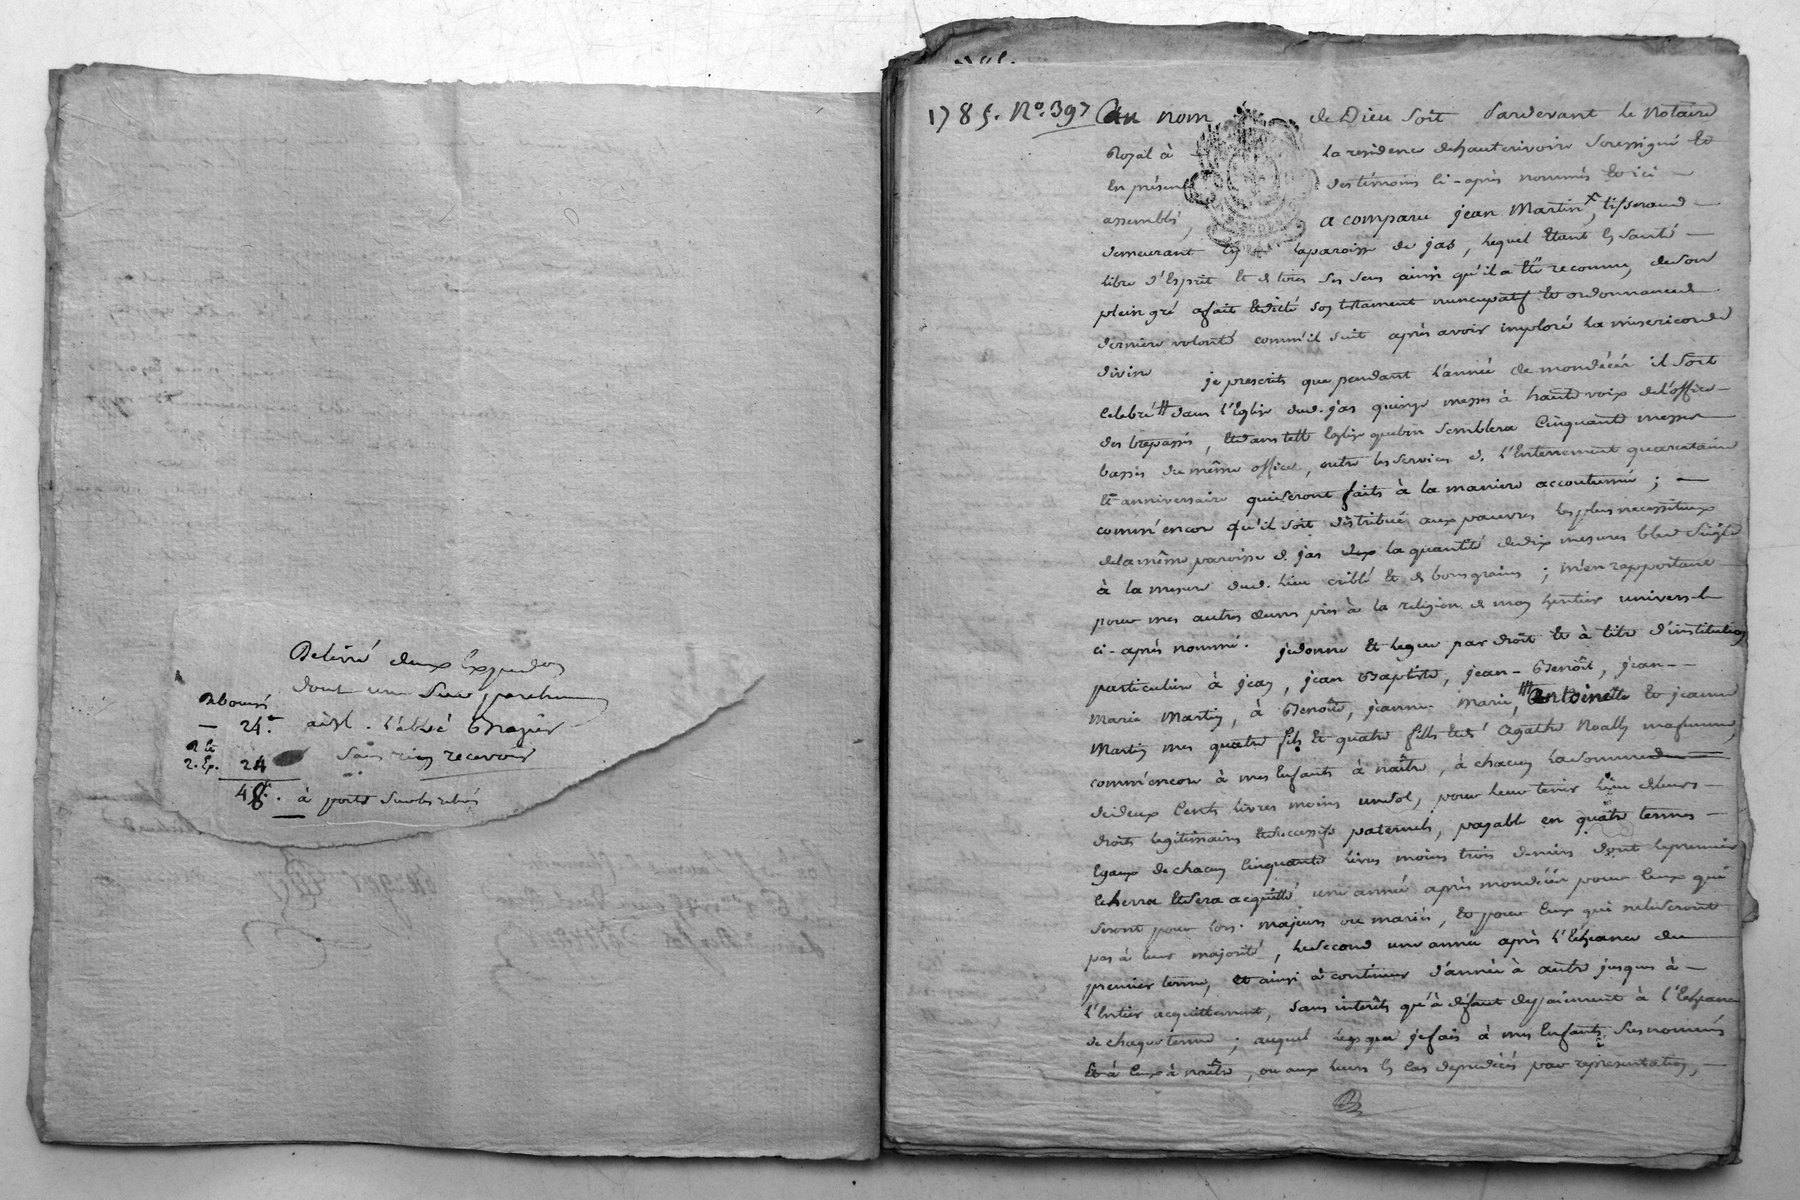 Delivré deux Expedons
dont une sur parchemin
Debourсé
24.s aud. s. l'abbé Brazier
2. Ex. 24 sans rien recevoir
48.s. à porté
1785. No. 397 Au nom de Dieu soit Pardevant le Notaire
Royal à la residence de hauterivoire soussigné et
en présence des témoins ci-après nommés et ici
assemblés, a comparu jean Martin x, tisserand
demeurant en laparoisse de jas, lequel étant en santé
libre d'Esprit et de tous ses sens ainsi qu'il a été reconnu, de son
plein gré afait et dicté son testament nuncupatif et ordonnance de
derniere volonté comm'il suit après avoir imploré la misericorde
divine je prescrits que pendant l'année de mon décés il soit
celebré # dans l'Eglise dud. jas quinze messes à haute voix de l'office
des trépassés, et dans telle Eglise que bon semblera Cinquante messes
basses du même office, outre les services de l'Enterrement quarantaine
et anniversaire qui seront faits à la maniere accoutumée ;
comm'encor qu'il soit distribué aux pauvres les plus necessiteux
de la même paroisse de jas la quantité de dix mesures bled seigle
à la mesure dud. lieu criblé et de bons grains ; m'en rapportant
pour mes autres œuvres pies à la religion de mon heritier universel
ci-après nommé. je donne et legue par droit et à titre d'institution
particuliere à jean, jean Baptiste, jean-Benoît, jean-
Marie Martin, à Benoîte, jeanne Marie, Antoinette et jeanne
Martin mes quatre fils et quatre filles et d'Agathe Noally ma femme,
comm'encore à mes Enfants à naître, à chacun la somme
de deux Cents livres moins un sol, pour leur tenir lieu de leurs
droits legitimaires et successifs paternels, payable en quatre termes
Egaux de chacun Cinquante livres moins trois deniers dont le premier
echerra et sera acquitté une année après mon décés pour Ceux qui
seront pour lors majeurs ou mariés, et pour Ceux qui ne le seront
pas à leur majorité, le second une année après l'Echeance du
premier terme, et ainsi à continuer d'année à autre jusques à
l'Entier acquittement, sans interêts qu'à défaut de paiement à l'Echeance
de chaque terme ; auquel legs que je fais à mes Enfants sus nommés
et à Ceux à naître, ou aux leurs en cas de prédécés par representation,